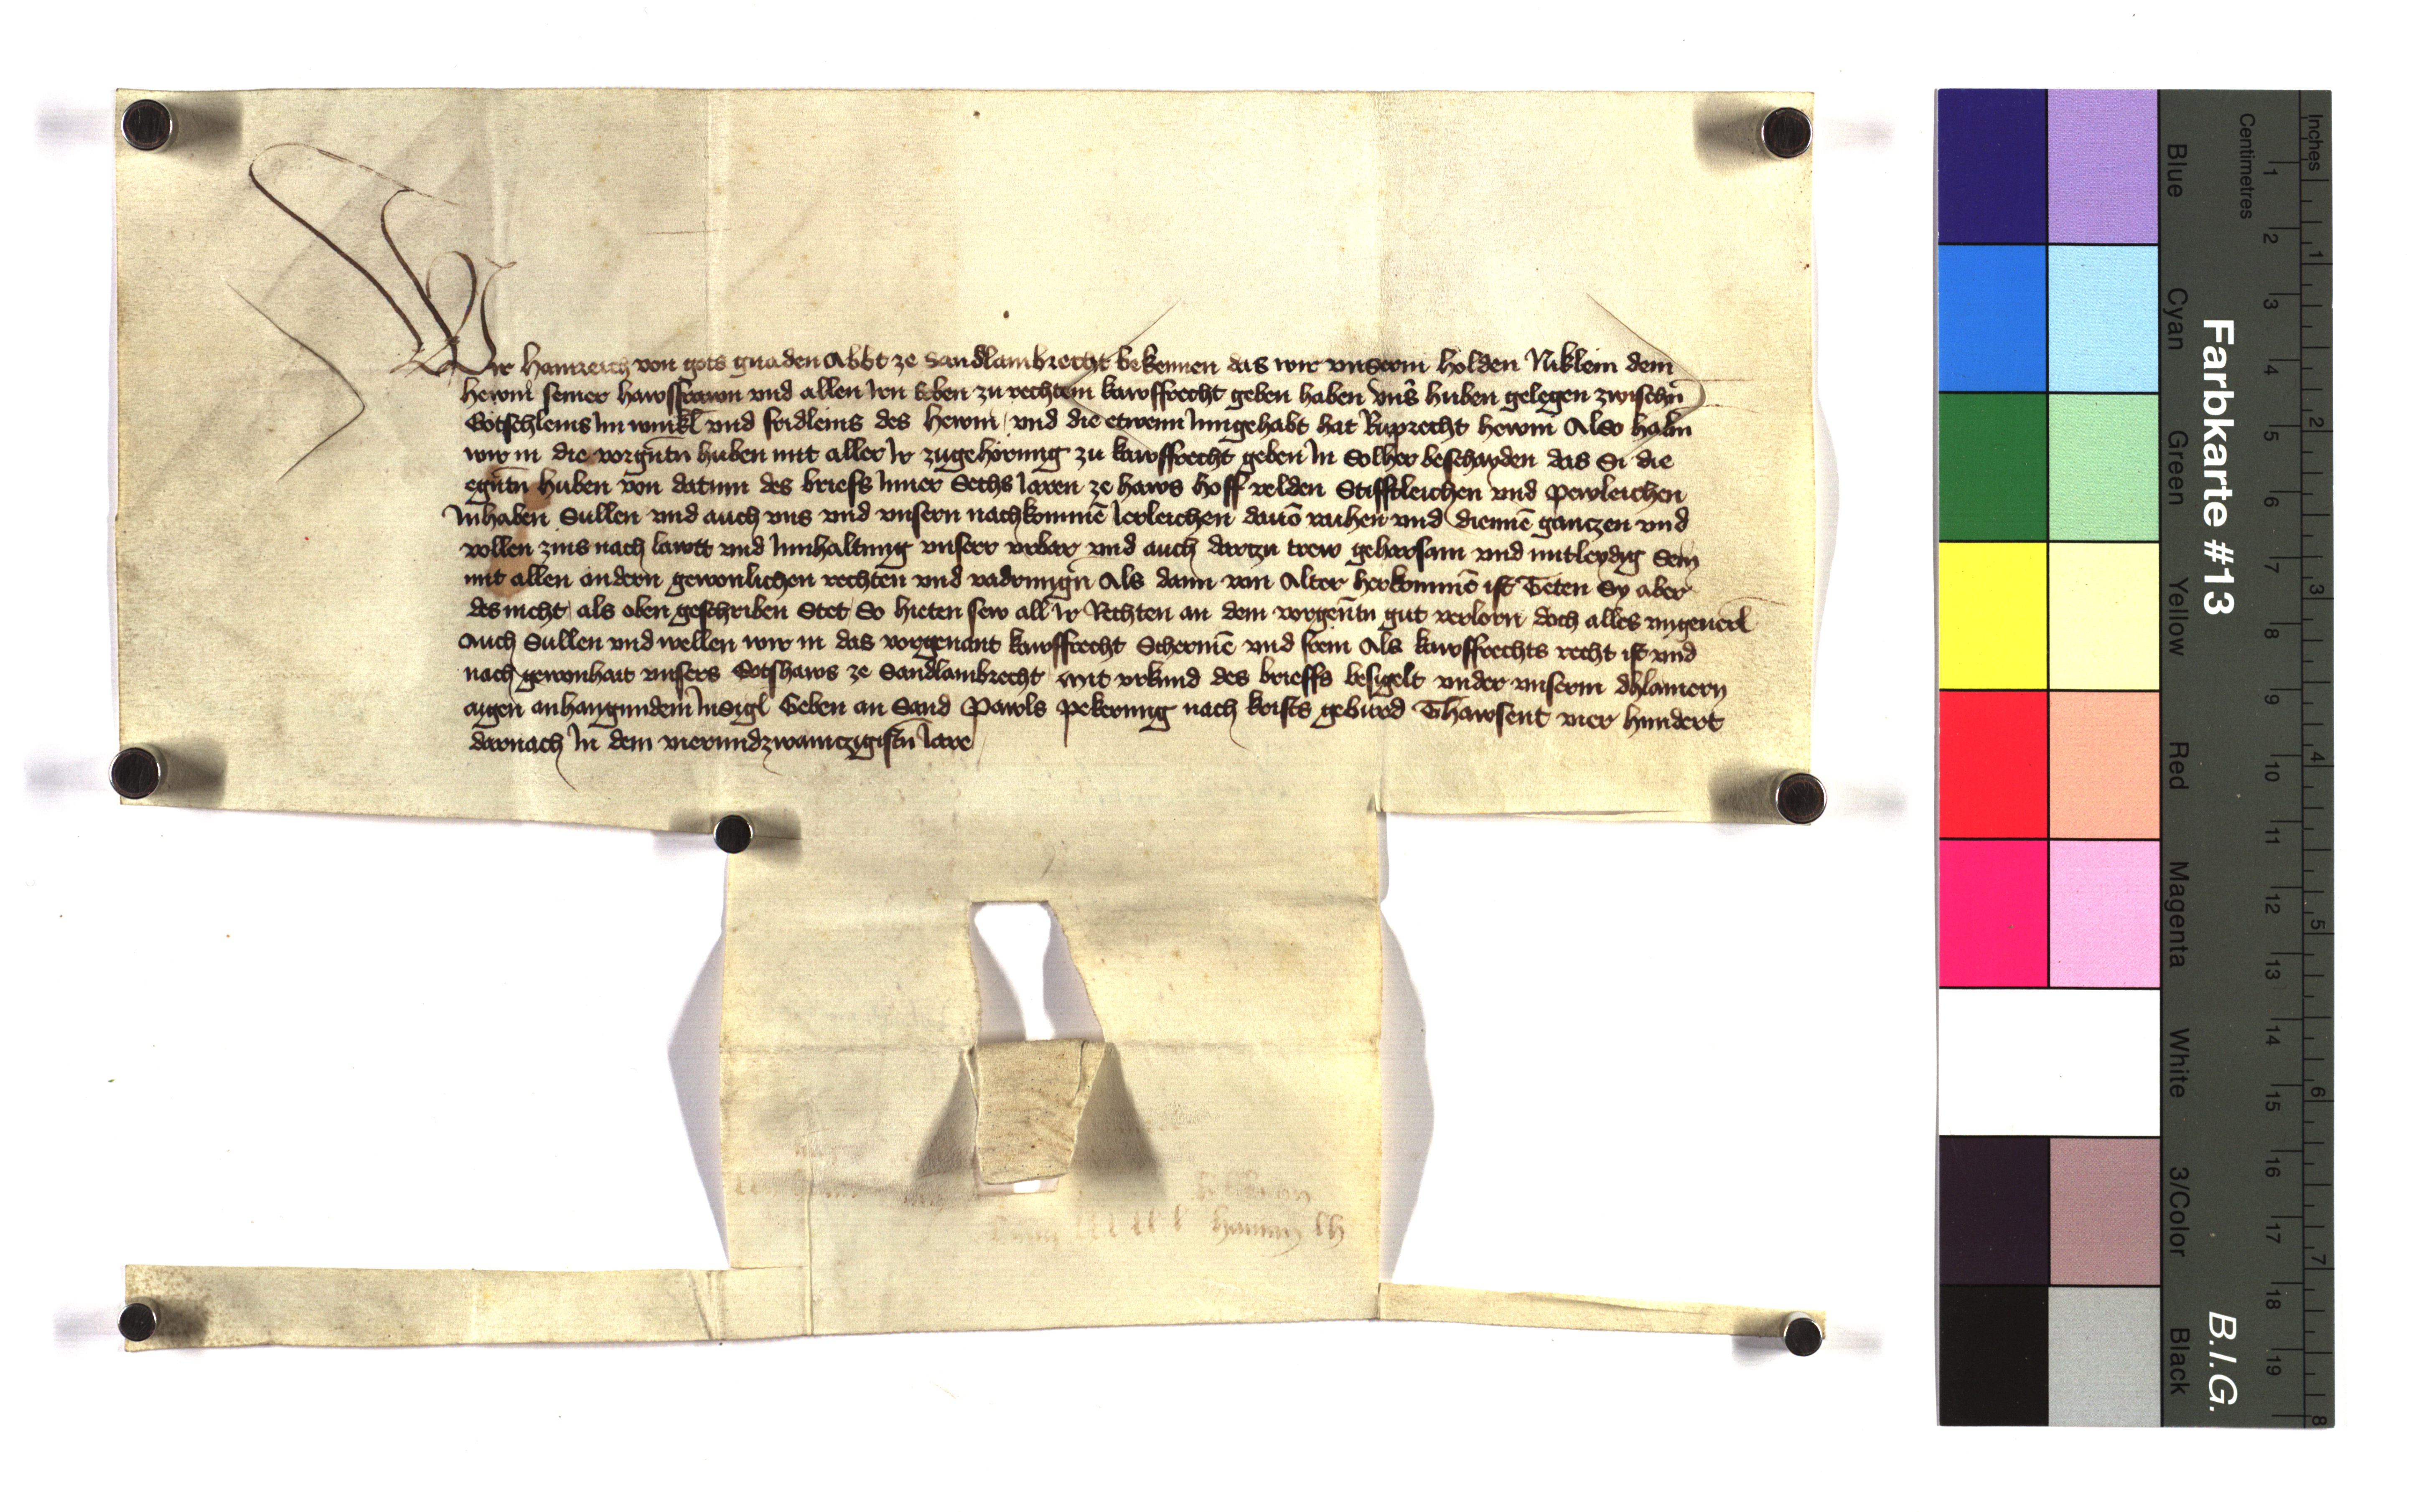 Wir Hainreich von gots gnaden Abbt ze Sandlambrecht bekennen das wir vnserm holden Niklein dem
hewm seiner hawsfrawn vnd allen Irn Erben zu rechtem kawffrecht geben haben vns huben gelegen zwischn
Gotschleins Im winkl vnd fridleins des hewm vnd die etwenn Inngehabt hat Ruprecht hewm Also habn
wir in die vorgntn huben mit aller Ir zugehörung zu kawffrecht geben In Solher beschayden das Si die
egntn huben von datum des briefs Inner Sechs Iaren ze haws hoff velden Stifftleichen vnd pewleichen
Inhaben Sullen vnd auch vns vnd vnsern nachkomme Ierleichen dauo raihen vnd dienne gantzen vnd
vollen zins nach lawtt vnd Innhaltung vnserr vrbar vnd auch dartzu trew gehorsam vnd mitleydig Sein
mit allen andern gewonlichen rechten vnd vadrungn Als dann von Alter herkomme ist Teten Sy aber
des nicht als oben geschriben Stet So hieten sew all Ir Rechten an dem vorgentn gut verlorn doch alles vngeuerl
Auch Sullen vnd wellen wir in das vorgenant kawffrecht Scherme vnd frein Als kawffrechts recht ist vnd
nach gewonhait vnsers Gotshaws ze Sandlambrecht Mit vrkund des brieffs besigelt vnder vnserm
aigen anhangundem Insigl Geben an Sand Pawls pekerung nach krists gebürd Thawsent vier hundert
darnach In dem vierundzwaintzigistn Iare
Inches
Centimetres
Farbkarte #13
B.I.G.
Blue
Cyan
Green
Yellow
Red
Magenta
White
3/Color
Black
1 2 3 4 5 6 7 8 9 10 11 12 13 14 15 16 17 18 19
1 2 3 4 5 6 7 8